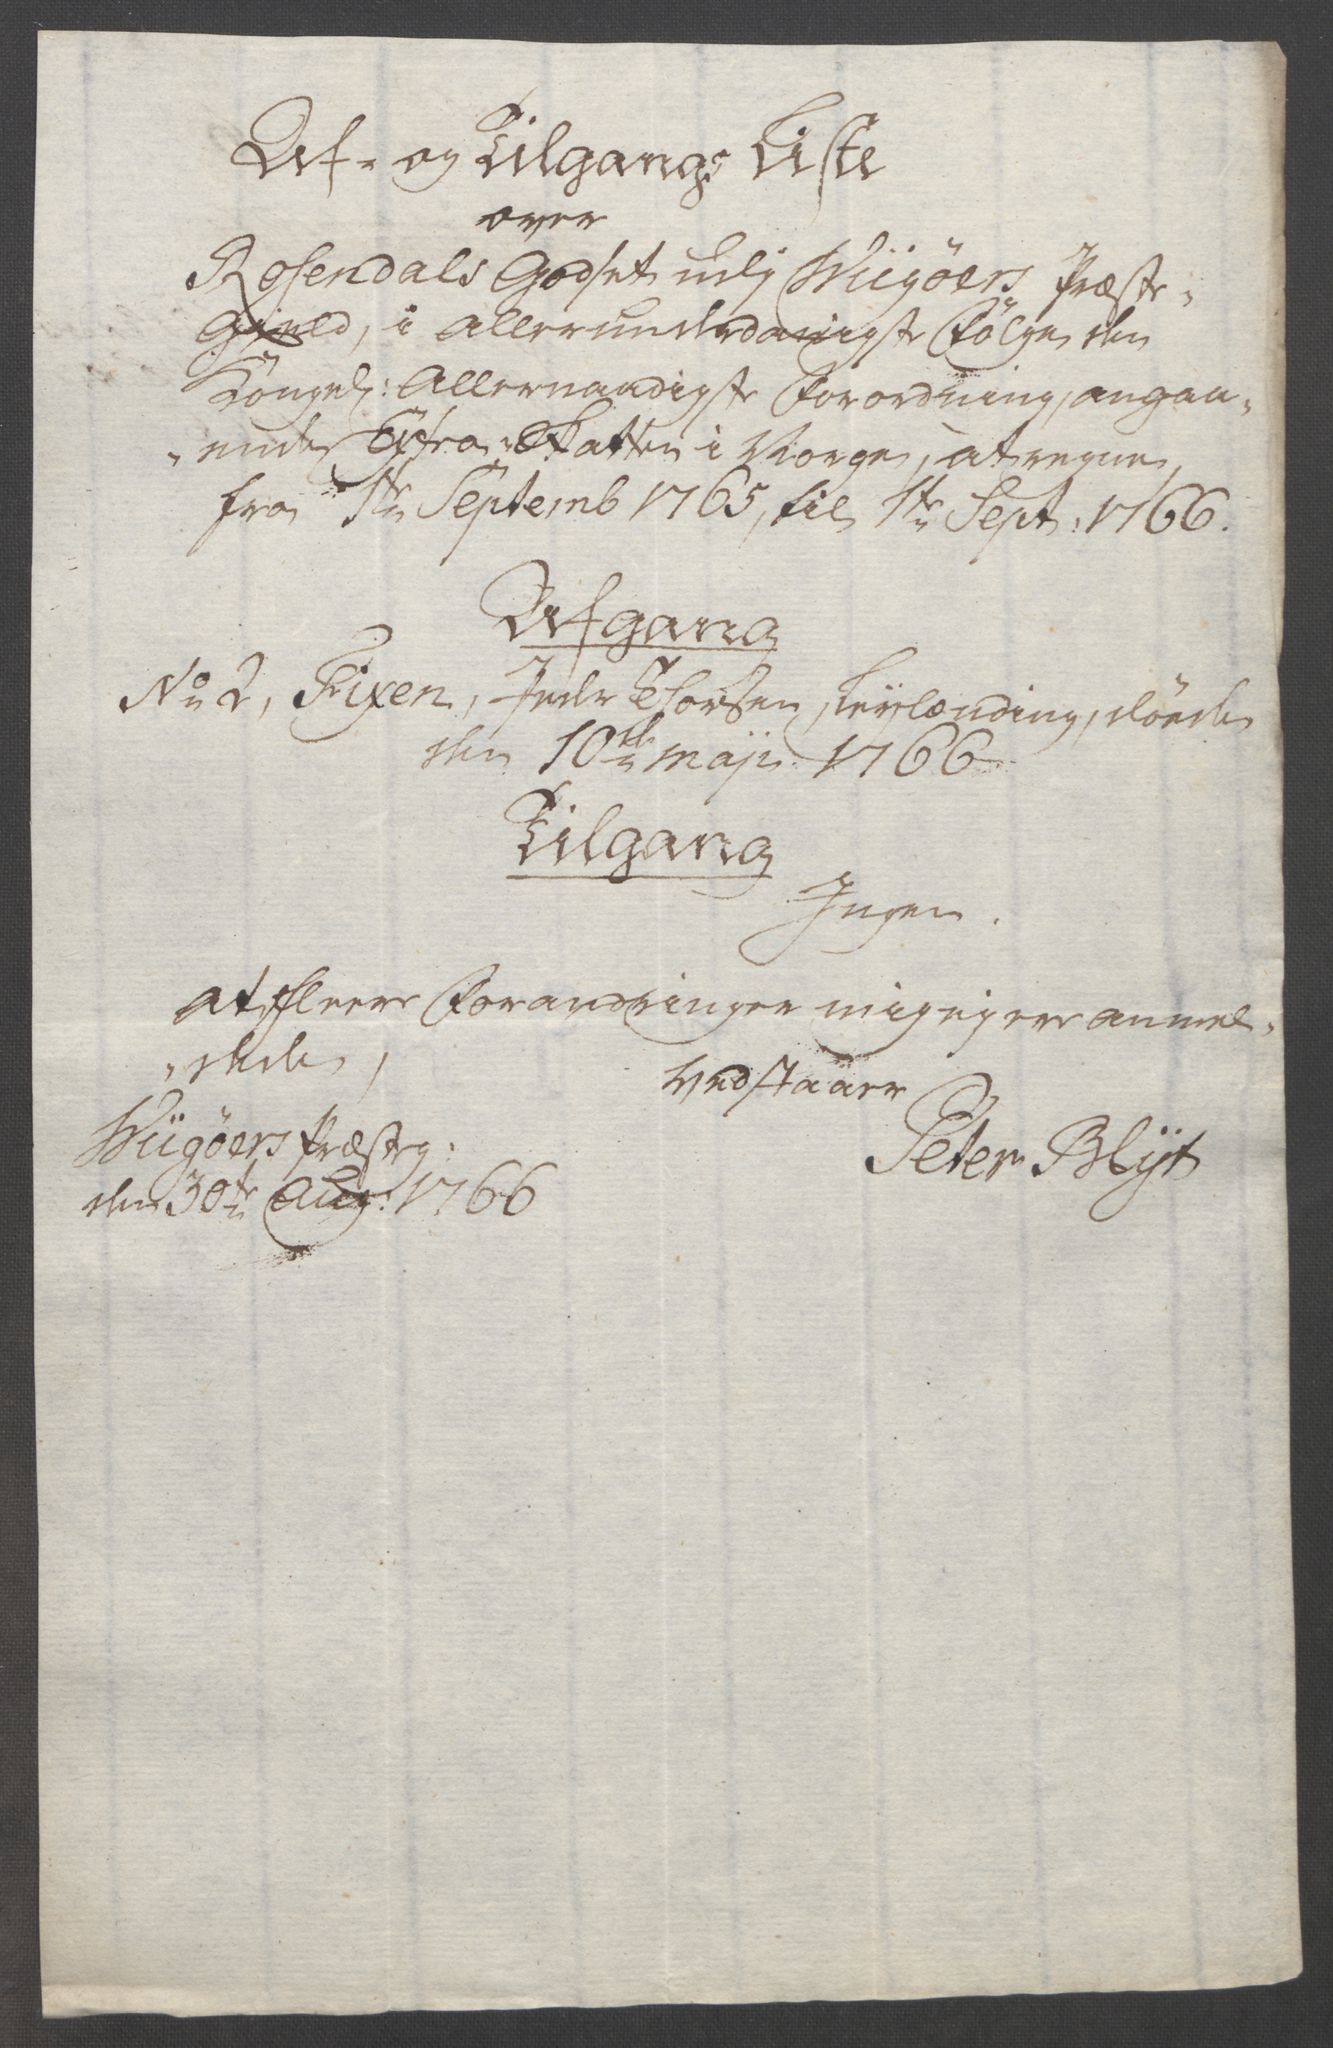 Af- og Tilgangs Liste
over
Rosendals Godset udj Wiigöers Præste-
Gield, i Allerunderdanigste Fölge den
Kongel: Allernaadigste Forordning, angaa-
-ende Extra-Skatten i Norge, at regne,
fra 1te Septemb 1765, til 1te Sept: 1766.
Afgang
No 2, Fixen, Peder Thorsen, Leylænding, döde
den 10de Maji 1766
Tilgang
Ingen.
at fleere Forandringer mig ej ere anmel-
-dede,
Vedstaaer
Wiigöers Præsteg:
Peter Blÿt
den 30te Aug: 1766